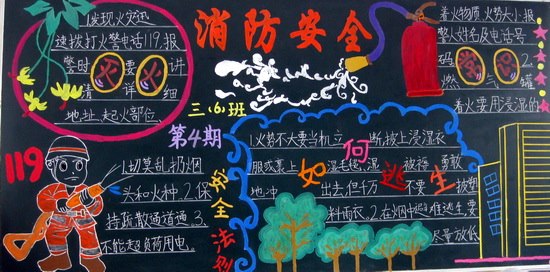 消防安全
三(6)班
第4期
1发现火灾迅
速拨打火警电话119,报
警时 要 讲
请 详细
地址、起火部位、
火 火
着火物质、火势大小、报
警人姓名及电话号
码 2.
燃气罐
着火要用浸湿的
常识
119
1.切莫乱扔烟
头和火种.2.保
持疏散通道通.3.
不能超负荷用电.
安全法则
如何逃生
1.火势不大要当机立断,披上浸湿衣
服或裹上湿毛毯、湿被褥勇敢
地冲出去,但千万不要披塑
料雨衣.2.在烟中避难逃生要
尽量放低